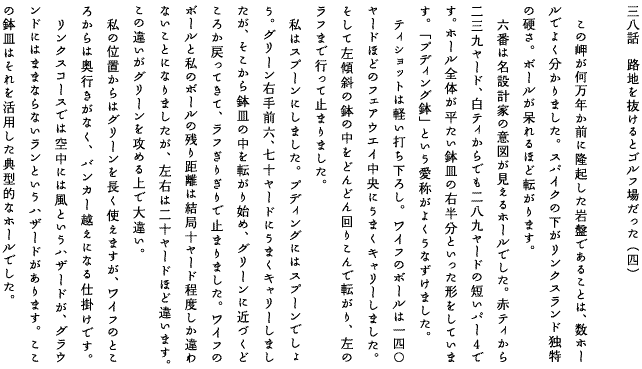 三八話　路地を抜けるとゴルフ場だった（四）
　この岬が何万年か前に隆起した岩盤であることは、数ホー
ルでよく分かりました。スパイクの下がリンクスランド独特
の硬さ。ボールが呆れるほど転がります。
　六番は名設計家の意図が見えるホールでした。赤ティから
二三九ヤード、白ティからでも二八九ヤードの短いパー4で
す。ホール全体が平たい鉢皿の右半分といった形をしていま
す。「プディング鉢」という愛称がよくうなずけました。
　ティショットは軽い打ち下ろし。ワイフのボールは一四〇
ヤードほどのフェアウエイ中央にうまくキャリーしました。
そして左傾斜の鉢の中をどんどん回りこんで転がり、左の
ラフまで行って止まりました。
　私はスプーンにしました。プディングにはスプーンでしょ
う。グリーン右手前六、七十ヤードにうまくキャリーしまし
たが、そこから鉢皿の中を転がり始め、グリーンに近づくど
ころか戻ってきて、ラフぎりぎりで止まりました。ワイフの
ボールと私のボールの残り距離は結局十ヤード程度しか違わ
ないことになりましたが、左右は二十ヤードほど違います。
この違いがグリーンを攻める上で大違い。
　私の位置からはグリーンを長く使えますが、ワイフのとこ
ろからは奥行きがなく、バンカー越えになる仕掛けです。
　リンクスコースでは空中には風というハザードが、グラウ
ンドにはままならないランというハザードがあります。ここ
の鉢皿はそれを活用した典型的なホールでした。